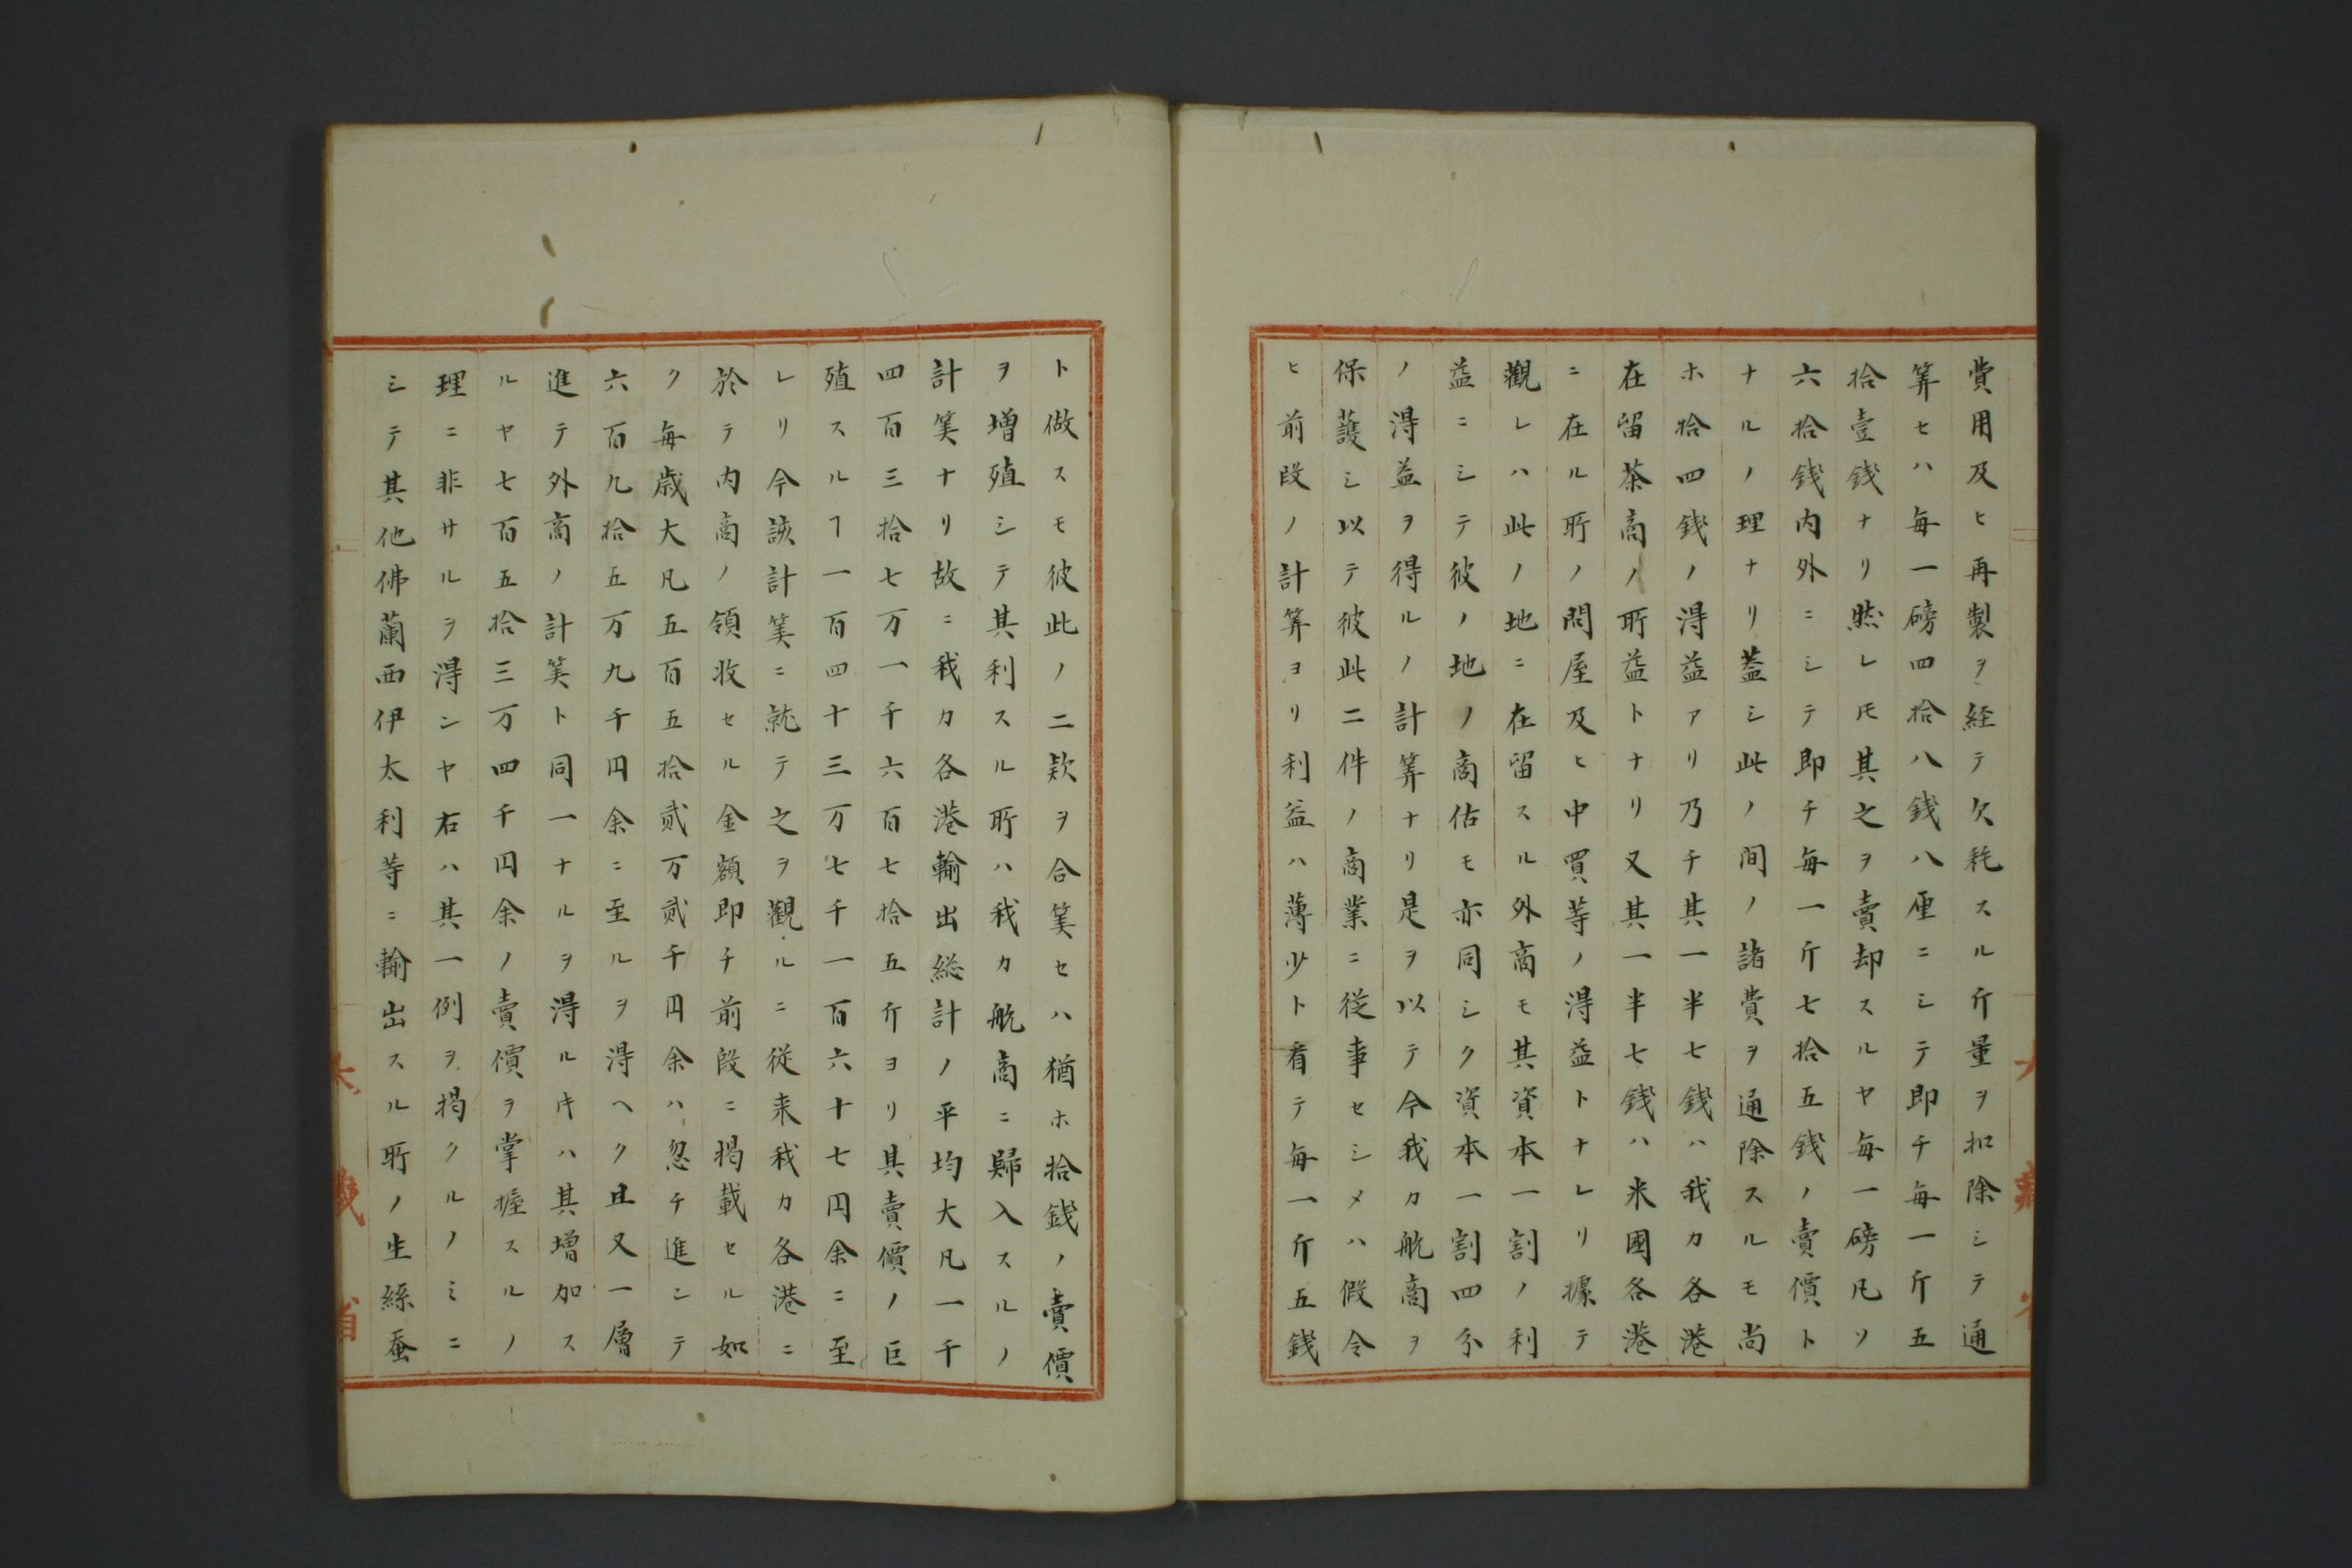 費用及ヒ再製ヲ経テ欠耗スル斤量ヲ扣除シテ通
算セハ毎一磅四拾八銭八厘ニシテ即チ毎一斤五
拾壹銭ナリ然レ𪜈其之ヲ賣却スルヤ毎一磅凡ソ
六拾銭内外ニシテ即チ毎一斤七拾五銭ノ賣價ト
ナルノ理ナリ蓋シ此ノ間ノ諸費ヲ通除スルモ尚
ホ拾四銭ノ淂益アリ乃チ其一半七銭ハ我カ各港
在留茶商ノ所益トナリ又其一半七銭ハ米國各港
ニ在ル所ノ問屋及ヒ中買等ノ淂益トナレリ據テ
觀レハ此ノ地ニ在留スル外商モ其資本一割ノ利
益ニシテ彼ノ地ノ商估モ亦同シク資本一割四分
ノ淂益ヲ得ルノ計算ナリ是ヲ以テ今我カ航商ヲ
保護シ以テ彼此二件ノ商業ニ従事セシメハ假令
ヒ前段ノ計算ヨリ利益ハ薄少ト看テ毎一斤五銭
ト做スモ彼此ノ二款ヲ合筭セハ猶ホ拾銭ノ賣價
ヲ増殖シテ其利スル所ハ我カ航商ニ歸入スルノ
計筭ナリ故ニ我カ各港輸出総計ノ平均大凡一千
四百三拾七万一千六百七拾五斤ヨリ其賣價ノ巨
殖スルヿ一百四十三万七千一百六十七円余ニ至
レリ今該計筭ニ就テ之ヲ觀ルニ従来我カ各港ニ
於テ内商ノ領收セル金額即チ前段ニ掲載セル如
ク毎歳大凡五百五拾貮万貮千円余ハ忽チ進ンテ
六百九拾五万九千円余ニ至ルヲ淂ヘク且又一層
進テ外商ノ計筭ト同一ナルヲ淂ル𪜈ハ其増加ス
ルヤ七百五拾三万四千円余ノ賣價ヲ掌握スルノ
理ニ非サルヲ淂ンヤ右ハ其一例ヲ掲クルノミニ
シテ其他佛蘭西伊太利等ニ輸出スル所ノ生絲蚕